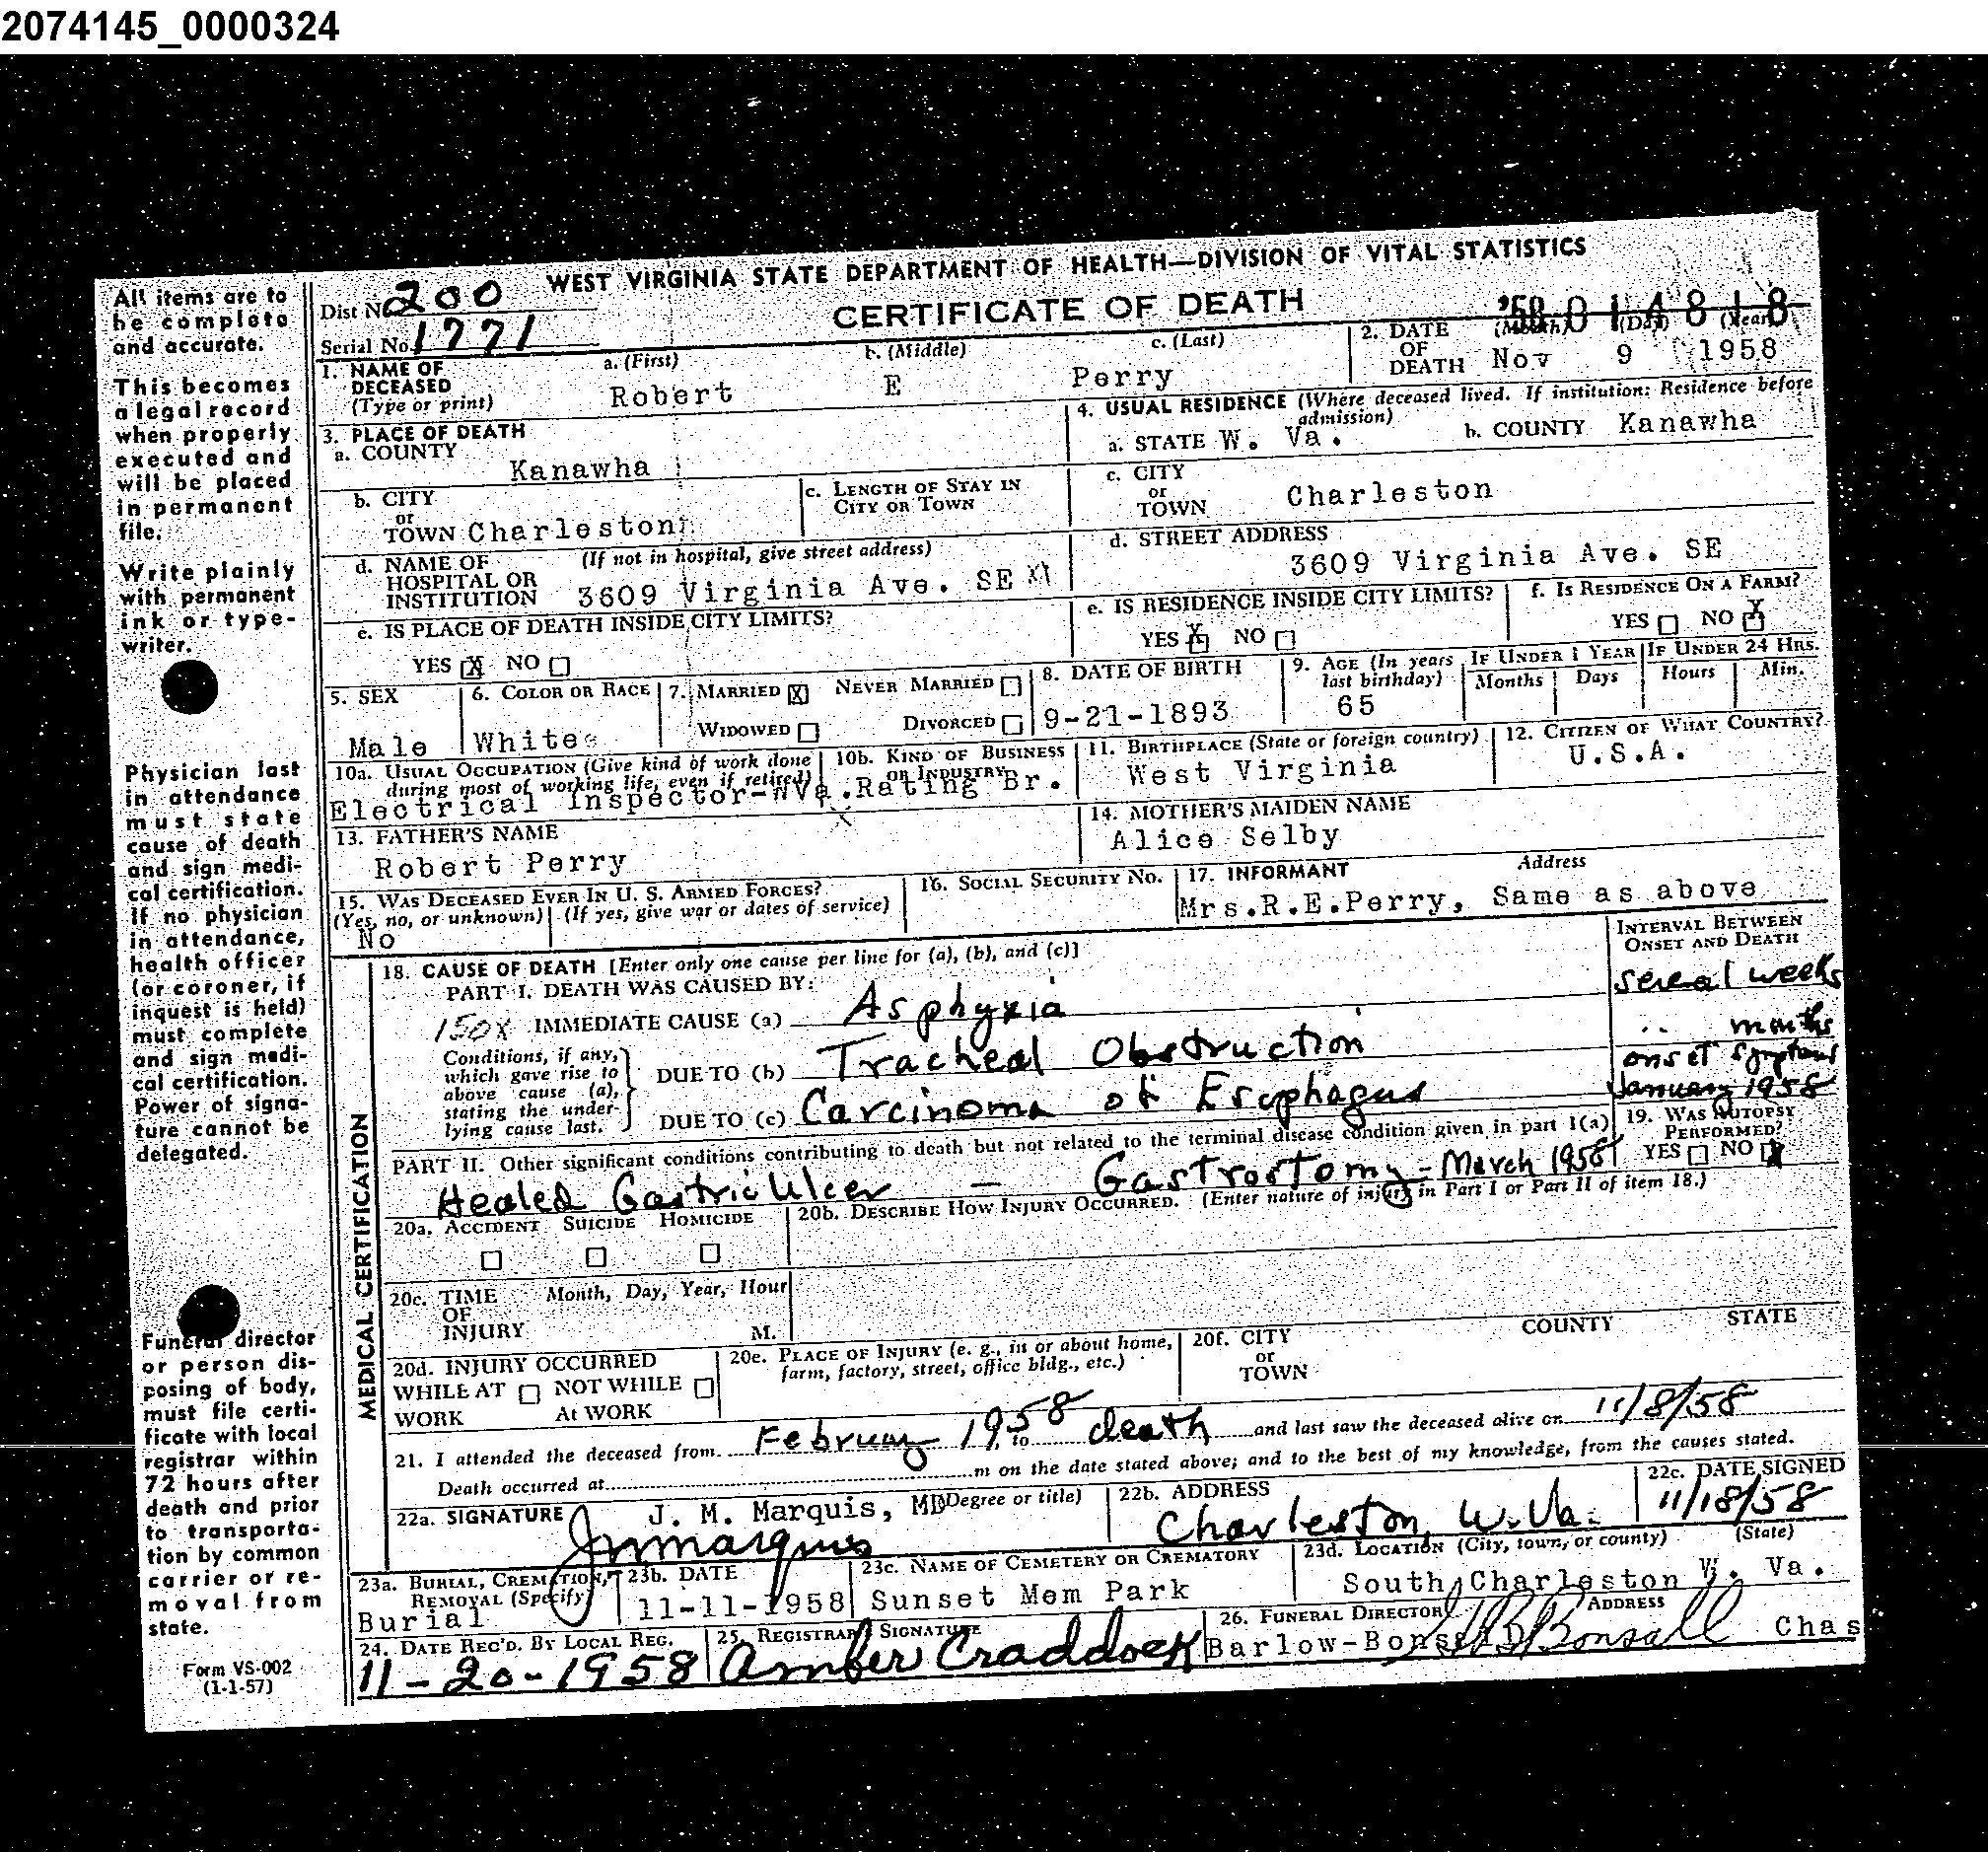 2074145_0000324
WEST VIRGINIA STATE DEPARTMENT OF HEALTH—DIVISION OF VITAL STATISTICS
CERTIFICATE OF DEATH
Dist No. 200
Serial No. 1771
'58 014818
All items are to
be complete
and accurate.
This becomes
a legal record
when properly
executed and
will be placed
in permanent
file.
Write plainly
with permanent
ink or type-
writer.
Physician last
in attendance
must state
cause of death
and sign medi-
cal certification.
If no physician
in attendance,
health officer
(or coroner, if
inquest is held)
must complete
and sign medi-
cal certification.
Power of signa-
ture cannot be
delegated.
Funeral director
or person dis-
posing of body,
must file certi-
ficate with local
registrar within
72 hours after
death and prior
to transporta-
tion by common
carrier or re-
moval from
state.
Form VS-002
(1-1-57)
1. NAME OF DECEASED (Type or print) a. (First) Robert b. (Middle) E c. (Last) Perry
2. DATE OF DEATH (Month) (Day) (Year) Nov 9 1958
3. PLACE OF DEATH
a. COUNTY Kanawha
b. CITY or TOWN Charleston
c. LENGTH OF STAY IN CITY OR TOWN
d. NAME OF HOSPITAL OR INSTITUTION (If not in hospital, give street address) 3609 Virginia Ave. SE
e. IS PLACE OF DEATH INSIDE CITY LIMITS?
YES X NO
4. USUAL RESIDENCE (Where deceased lived. If institution: Residence before admission)
a. STATE W. Va. b. COUNTY Kanawha
c. CITY or TOWN Charleston
d. STREET ADDRESS 3609 Virginia Ave. SE
e. IS RESIDENCE INSIDE CITY LIMITS? YES X NO
f. IS RESIDENCE ON A FARM? YES NO X
5. SEX Male
6. COLOR OR RACE White
7. MARRIED X NEVER MARRIED
WIDOWED DIVORCED
8. DATE OF BIRTH 9-21-1893
9. AGE (In years last birthday) 65
IF UNDER 1 YEAR Months Days
IF UNDER 24 HRS. Hours Min.
10a. USUAL OCCUPATION (Give kind of work done during most of working life, even if retired) Electrical Inspector-WVa.
10b. KIND OF BUSINESS OR INDUSTRY Rating Br.
11. BIRTHPLACE (State or foreign country) West Virginia
12. CITIZEN OF WHAT COUNTRY? U.S.A.
13. FATHER'S NAME Robert Perry
14. MOTHER'S MAIDEN NAME Alice Selby
15. WAS DECEASED EVER IN U. S. ARMED FORCES?
(Yes, no, or unknown) (If yes, give war or dates of service)
No
16. SOCIAL SECURITY NO.
17. INFORMANT Address
Mrs.R.E.Perry, Same as above
MEDICAL CERTIFICATION
18. CAUSE OF DEATH [Enter only one cause per line for (a), (b), and (c)]
INTERVAL BETWEEN ONSET AND DEATH
PART I. DEATH WAS CAUSED BY:
150X IMMEDIATE CAUSE (a) Asphyxia sereal weeks
Conditions, if any, which gave rise to above cause (a), stating the underlying cause last.
DUE TO (b) Tracheal Obstruction .. months
DUE TO (c) Carcinoma of Esophagus onset symptoms January 1958
PART II. Other significant conditions contributing to death but not related to the terminal disease condition given in part I(a)
Healed Gastric Ulcer — Gastrostomy - March 1958
19. WAS AUTOPSY PERFORMED?
YES NO X
20a. ACCIDENT SUICIDE HOMICIDE
20b. DESCRIBE HOW INJURY OCCURRED. (Enter nature of injury in Part I or Part II of item 18.)
20c. TIME OF INJURY Month, Day, Year, Hour M.
20d. INJURY OCCURRED
WHILE AT WORK NOT WHILE At WORK
20e. PLACE OF INJURY (e. g., in or about home, farm, factory, street, office bldg., etc.)
20f. CITY or TOWN COUNTY STATE
21. I attended the deceased from February 1958 to death and last saw the deceased alive on 11/8/58
Death occurred at m on the date stated above; and to the best of my knowledge, from the causes stated.
22a. SIGNATURE J. M. Marquis, MD (Degree or title)
JMMarquis
22b. ADDRESS Charleston, W.Va.
22c. DATE SIGNED 11/18/58
23a. BURIAL, CREMATION, REMOVAL (Specify) Burial
23b. DATE 11-11-1958
23c. NAME OF CEMETERY OR CREMATORY Sunset Mem Park
23d. LOCATION (City, town, or county) (State) South Charleston W. Va.
24. DATE REC'D. BY LOCAL REG. 11-20-1958
25. REGISTRAR'S SIGNATURE Amber Craddock
26. FUNERAL DIRECTOR ADDRESS
Barlow-Bonsall Bonsall Chas